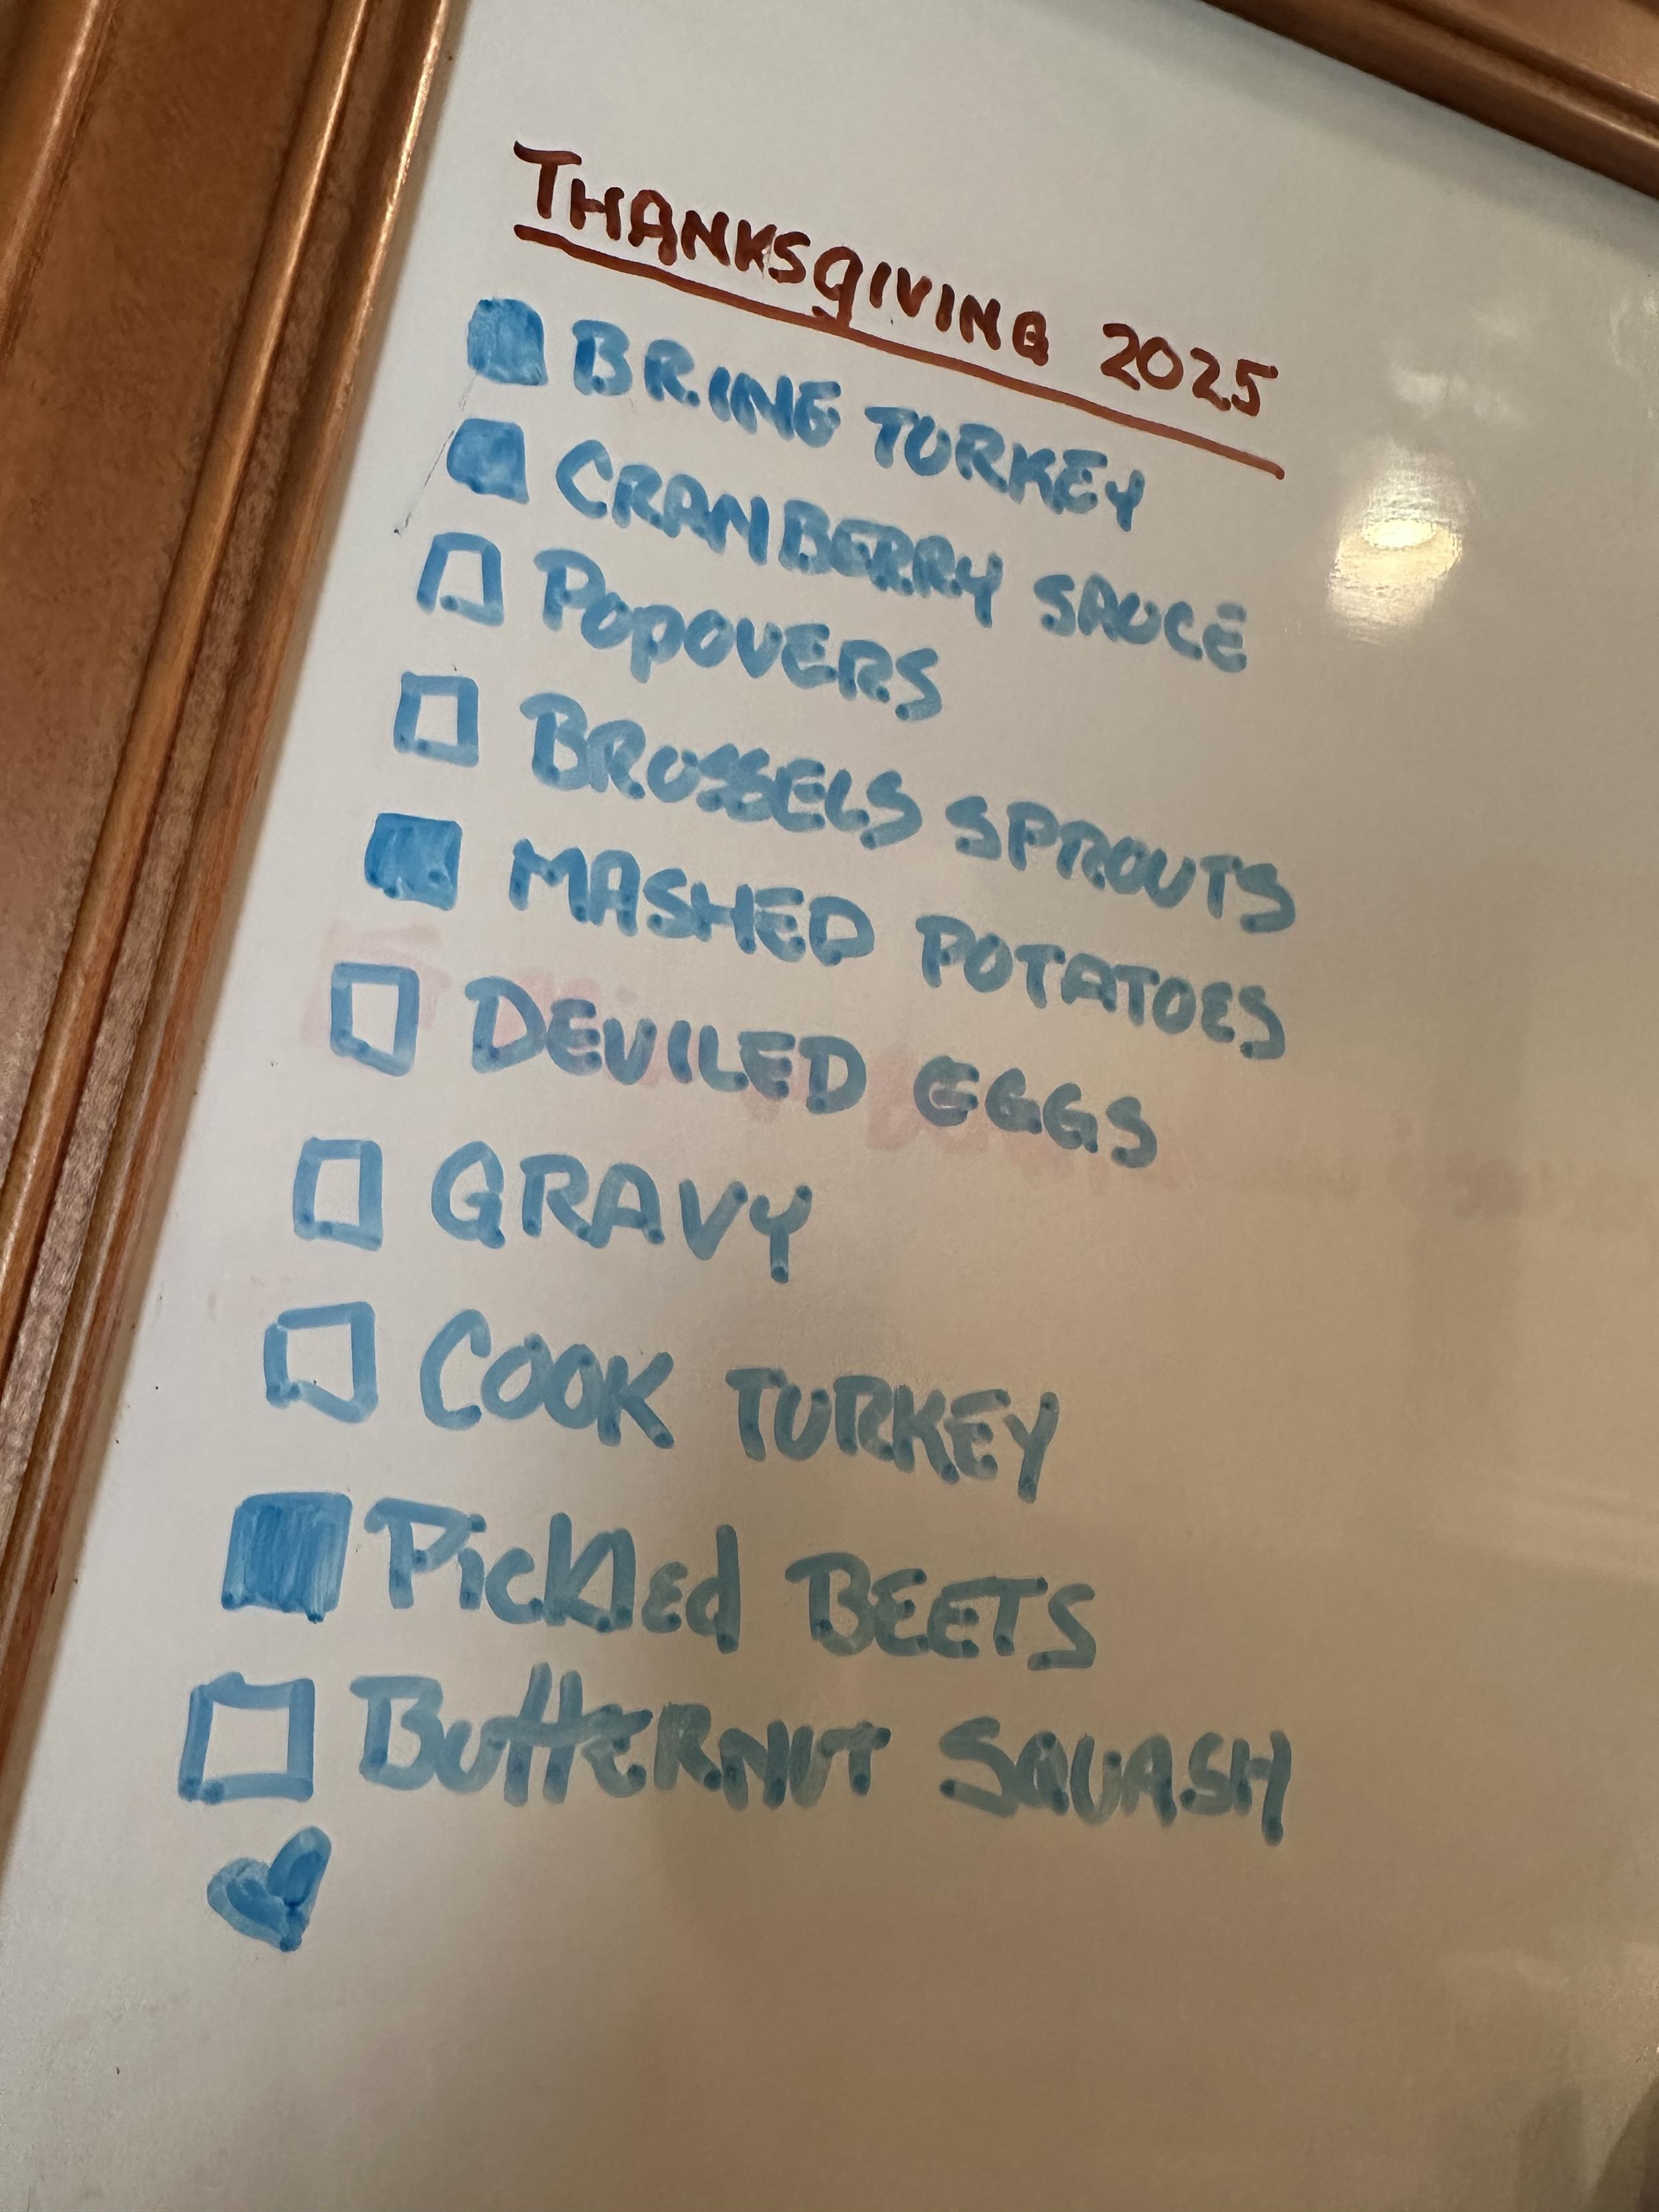 THANKSGIVING 2025
BRINE TURKEY
CRANBERRY SAUCE
POPOVERS
BRUSSELS SPROUTS
MASHED POTATOES
DEVILED EGGS
GRAVY
COOK TURKEY
Pickled BEETS
ButtERNUT SQUASH